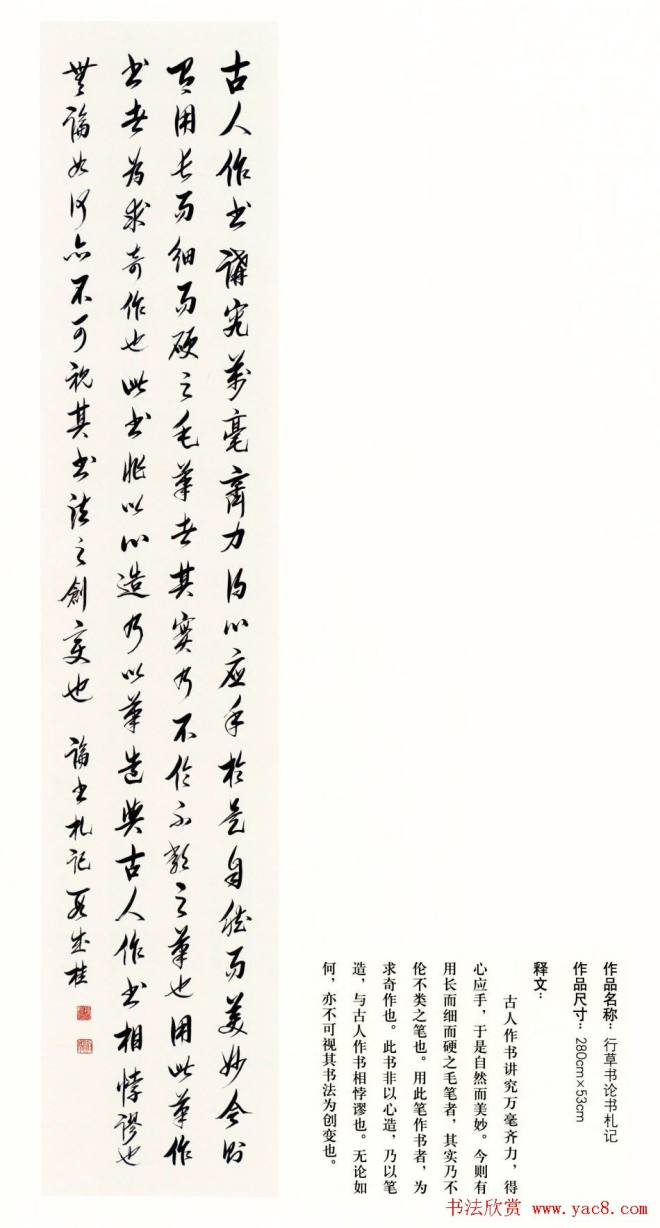 古人作书講究萬毫齊力得心应手於是自然而美妙今則
有用长而細而硬之毛筆者其實乃不伦不類之筆也用此筆作
书者为求奇作也此书非以心造乃以筆造與古人作书相悖謬也
無論如何亦不可視其书法之創变也 論书札记 段成桂
作品名称：行草书论书札记
作品尺寸：280cm×53cm
释文：
古人作书讲究万毫齐力，得
心应手，于是自然而美妙。今则有
用长而细而硬之毛笔者，其实乃不
伦不类之笔也。用此笔作书者，为
求奇作也。此书非以心造，乃以笔
造，与古人作书相悖谬也。无论如
何，亦不可视其书法为创变也。
书法欣赏 www.yac8.com